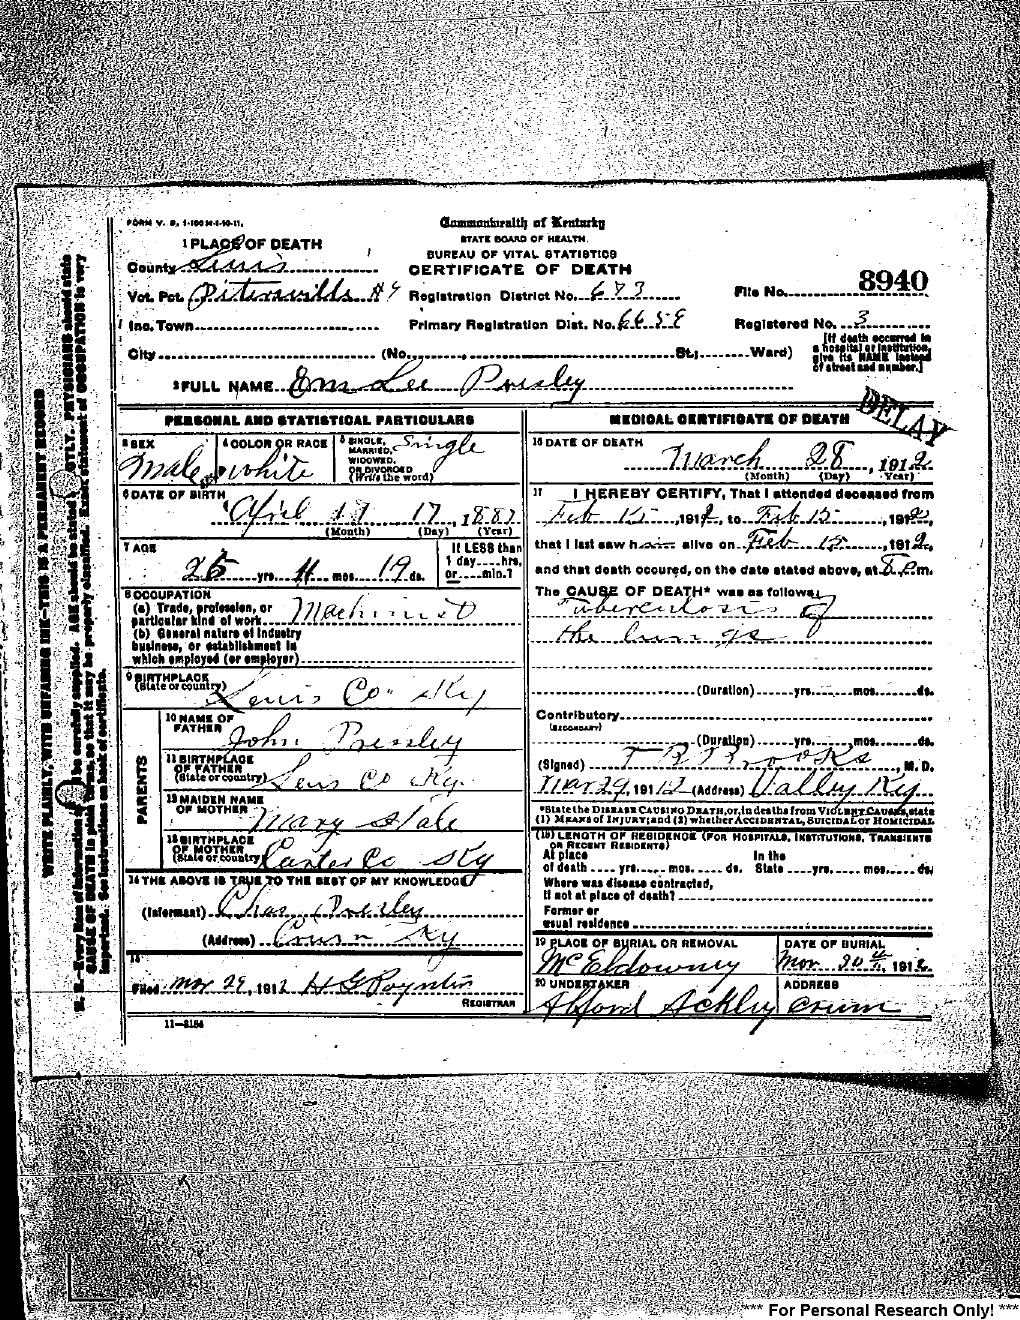 FORM V. S. 1-100 M-1-10-11.
Commonwealth of Kentucky
STATE BOARD OF HEALTH.
BUREAU OF VITAL STATISTICS
CERTIFICATE OF DEATH
1 PLACE OF DEATH
County Lewis
Vot. Pct. Petersville #4 Registration District No. 673 File No. 8940
Inc. Town Primary Registration Dist. No. Registered No. 3
City (No. , St.; Ward)
[If death occurred in
a hospital or institution,
give its NAME instead
of street and number.]
2 FULL NAME Lee Presley
DELAY
PERSONAL AND STATISTICAL PARTICULARS
3 SEX
Male
4 COLOR OR RACE
white
5 SINGLE,
MARRIED,
WIDOWED,
OR DIVORCED
(Write the word)
Single
6 DATE OF BIRTH
April 17 17, 1887
(Month) (Day) (Year)
7 AGE
25 yrs. 11 mos. 19 ds.
If LESS than
1 day....hrs.
or....min.?
8 OCCUPATION
(a) Trade, profession, or
particular kind of work Machinist
(b) General nature of industry
business, or establishment in
which employed (or employer)
9 BIRTHPLACE
(State or country) Lewis Co. Ky
PARENTS
10 NAME OF
FATHER John Pressley
11 BIRTHPLACE
OF FATHER
(State or country) Lewis Co Ky.
12 MAIDEN NAME
OF MOTHER Mary Hale
13 BIRTHPLACE
OF MOTHER
(State or country) Carter Co Ky
14 THE ABOVE IS TRUE TO THE BEST OF MY KNOWLEDGE
(Informant) Chas Presley
(Address) Ky
15
Filed Mar 29, 1912 H G Poynter
REGISTRAR
11—3184
MEDICAL CERTIFICATE OF DEATH
16 DATE OF DEATH
March 28, 1912
(Month) (Day) (Year)
17 I HEREBY CERTIFY, That I attended deceased from
Feb 15, 1912, to Feb 15, 1912,
that I last saw him alive on Feb 15, 1912.
and that death occured, on the date stated above, at 8 P.m.
The CAUSE OF DEATH* was as follows:
Tuberculosis of
the lungs
(Duration) yrs. mos. ds.
Contributory
(SECONDARY)
(Duration) yrs. mos. ds.
(Signed) T R Brooks, M. D.
Mar 29, 1912 (Address) Valley Ky
*State the DISEASE CAUSING DEATH, or, in deaths from VIOLENT CAUSES, state
(1) MEANS OF INJURY; and (2) whether ACCIDENTAL, SUICIDAL OR HOMICIDAL
(18) LENGTH OF RESIDENCE (FOR HOSPITALS, INSTITUTIONS, TRANSIENTS
OR RECENT RESIDENTS)
At place In the
of death .... yrs. mos. ds. State yrs. mos. ds.
Where was disease contracted,
if not at place of death?
Former or
usual residence
19 PLACE OF BURIAL OR REMOVAL
McEldowney
DATE OF BURIAL
Mar. 30th, 1912
20 UNDERTAKER
Ackley
ADDRESS
Crum
WRITE PLAINLY, WITH UNFADING INK—THIS IS A PERMANENT RECORD
N. B.—Every item of information be carefully supplied. AGE should be stated EXACTLY. PHYSICIANS should state
CAUSE OF DEATH in plain terms, so that it may be properly classified. Exact statement of OCCUPATION is very
important. See instructions on back of certificate.
*** For Personal Research Only! ***